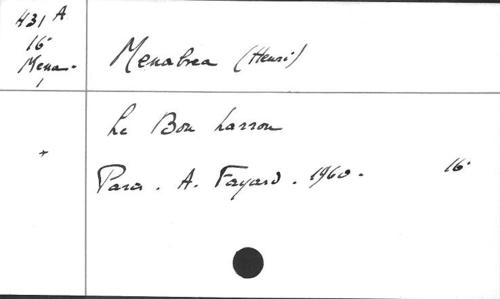 431 A
16°
Mena.
1
Menabrea (Henri)
Le Bon Larron
Paris. A. Fayard. 1960.
16°